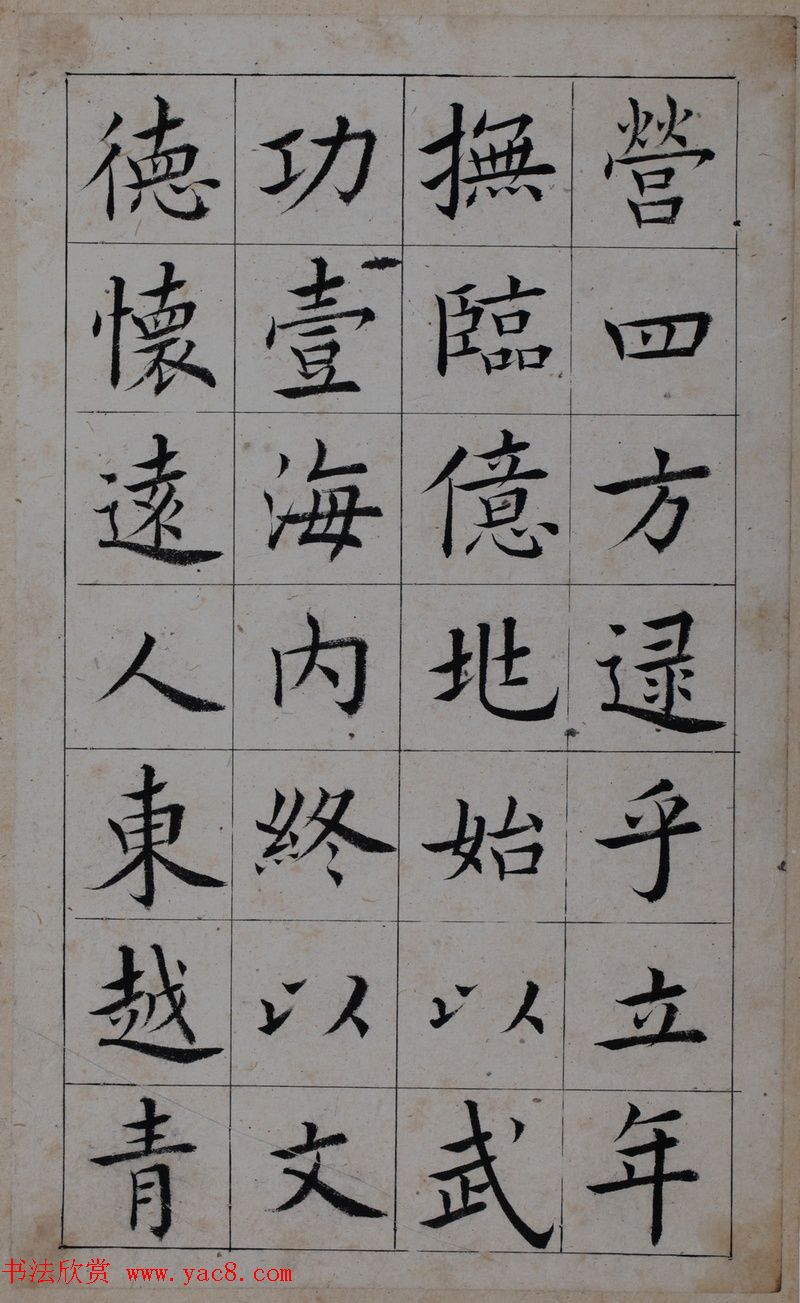 營四方逯乎立年
撫臨億兆始以武
功壹海内終以文
德懷遠人東越青
书法欣赏 www.yac8.com